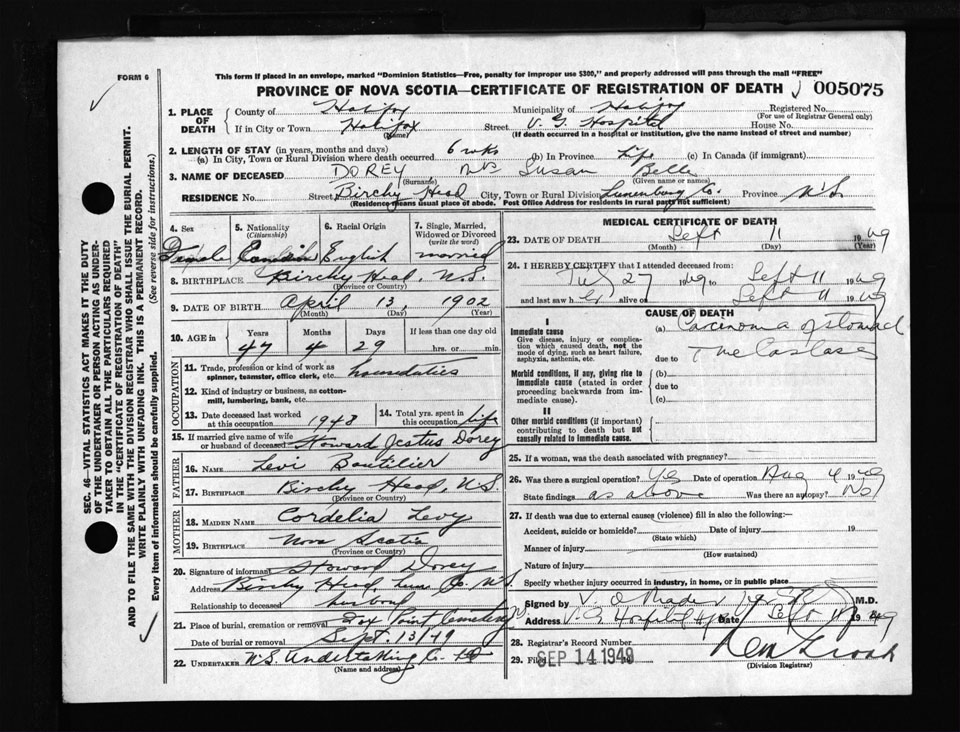 FORM 6
This form if placed in an envelope, marked "Dominion Statistics—Free, penalty for improper use $300," and properly addressed will pass through the mail "FREE"
PROVINCE OF NOVA SCOTIA—CERTIFICATE OF REGISTRATION OF DEATH 005075
1. PLACE OF DEATH County of Halifax Municipality of Halifax Registered No.
(For use of Registrar General only)
If in City or Town Halifax Street V. G. Hospital House No.
(Name) (If death occurred in a hospital or institution, give the name instead of street and number)
2. LENGTH OF STAY (in years, months and days)
(a) In City, Town or Rural Division where death occurred 6 wks (b) In Province Life (c) In Canada (if immigrant)
3. NAME OF DECEASED DOREY Mrs Susan Belle
(Surname) (Given name or names)
RESIDENCE No. Street Birchy Head City, Town or Rural Division Lunenburg Co. Province N.S.
(Residence means usual place of abode. Post Office Address for residents in rural parts not sufficient)
4. Sex 5. Nationality (Citizenship) 6. Racial Origin 7. Single, Married, Widowed or Divorced (write the word)
Female Canadian English married
8. BIRTHPLACE Birchy Head, N.S.
(Province or Country)
9. DATE OF BIRTH April 13, 1902
(Month) (Day) (Year)
10. AGE in Years Months Days If less than one day old
47 4 29 hrs. or min.
OCCUPATION
11. Trade, profession or kind of work as spinner, teamster, office clerk, etc. houseduties
12. Kind of industry or business, as cotton-mill, lumbering, bank, etc.
13. Date deceased last worked at this occupation 1948 14. Total yrs. spent in this occupation Life
15. If married give name of wife or husband of deceased Howard Jestus Dorey
FATHER
16. NAME Levi Boutilier
17. BIRTHPLACE Birchy Head, N.S.
(Province or Country)
MOTHER
18. MAIDEN NAME Cordelia Levy
19. BIRTHPLACE Nova Scotia
(Province or Country)
20. Signature of informant Howard Dorey
Address Birchy Head, Lun Co. N.S.
Relationship to deceased husband
21. Place of burial, cremation or removal Fox Point Cemetery
Date of burial or removal Sept. 13/49
22. UNDERTAKER N.S. Undertaking Co. Ltd
(Name and address)
MEDICAL CERTIFICATE OF DEATH
23. DATE OF DEATH Sept 11 1949
(Month) (Day) (Year)
24. I HEREBY CERTIFY that I attended deceased from:
27 1949 to Sept 11 1949
and last saw her alive on Sept 11 1949
CAUSE OF DEATH
I
Immediate cause
Give disease, injury or complication which caused death, not the mode of dying, such as heart failure, asphyxia, asthenia, etc.
(a) Carcinoma of stomach
due to
Morbid conditions, if any, giving rise to immediate cause (stated in order proceeding backwards from immediate cause).
(b)
due to
(c)
II
Other morbid conditions (if important) contributing to death but not causally related to immediate cause.
25. If a woman, was the death associated with pregnancy?
26. Was there a surgical operation? Yes Date of operation Aug 4 1949
State findings as above Was there an autopsy? No
27. If death was due to external causes (violence) fill in also the following:—
Accident, suicide or homicide? Date of injury 19
(State which)
Manner of injury
(How sustained)
Nature of injury
Specify whether injury occurred in industry, in home, or in public place
Signed by V. O. Mader M.D.
Address V. G. Hospital Date Sept 11 1949
28. Registrar's Record Number
29. Filed SEP 14 1949 19
(Division Registrar)
SEC. 46—VITAL STATISTICS ACT MAKES IT THE DUTY OF THE UNDERTAKER OR PERSON ACTING AS UNDERTAKER TO OBTAIN ALL THE PARTICULARS REQUIRED IN THE "CERTIFICATE OF REGISTRATION OF DEATH" AND TO FILE THE SAME WITH THE DIVISION REGISTRAR WHO SHALL ISSUE THE BURIAL PERMIT.
WRITE PLAINLY WITH UNFADING INK. THIS IS A PERMANENT RECORD.
Every item of information should be carefully supplied. (See reverse side for instructions.)